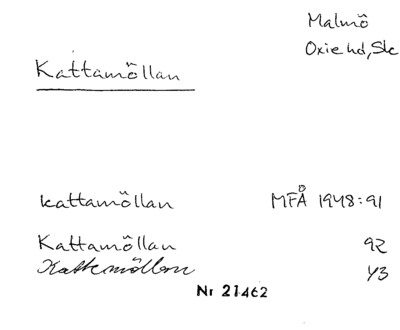 Malmö
Oxie hd, Sk
Kattamöllan
kattamöllan MFÅ 1948:91
Kattamöllan 92
Kattemöllan 43
Nr 21462